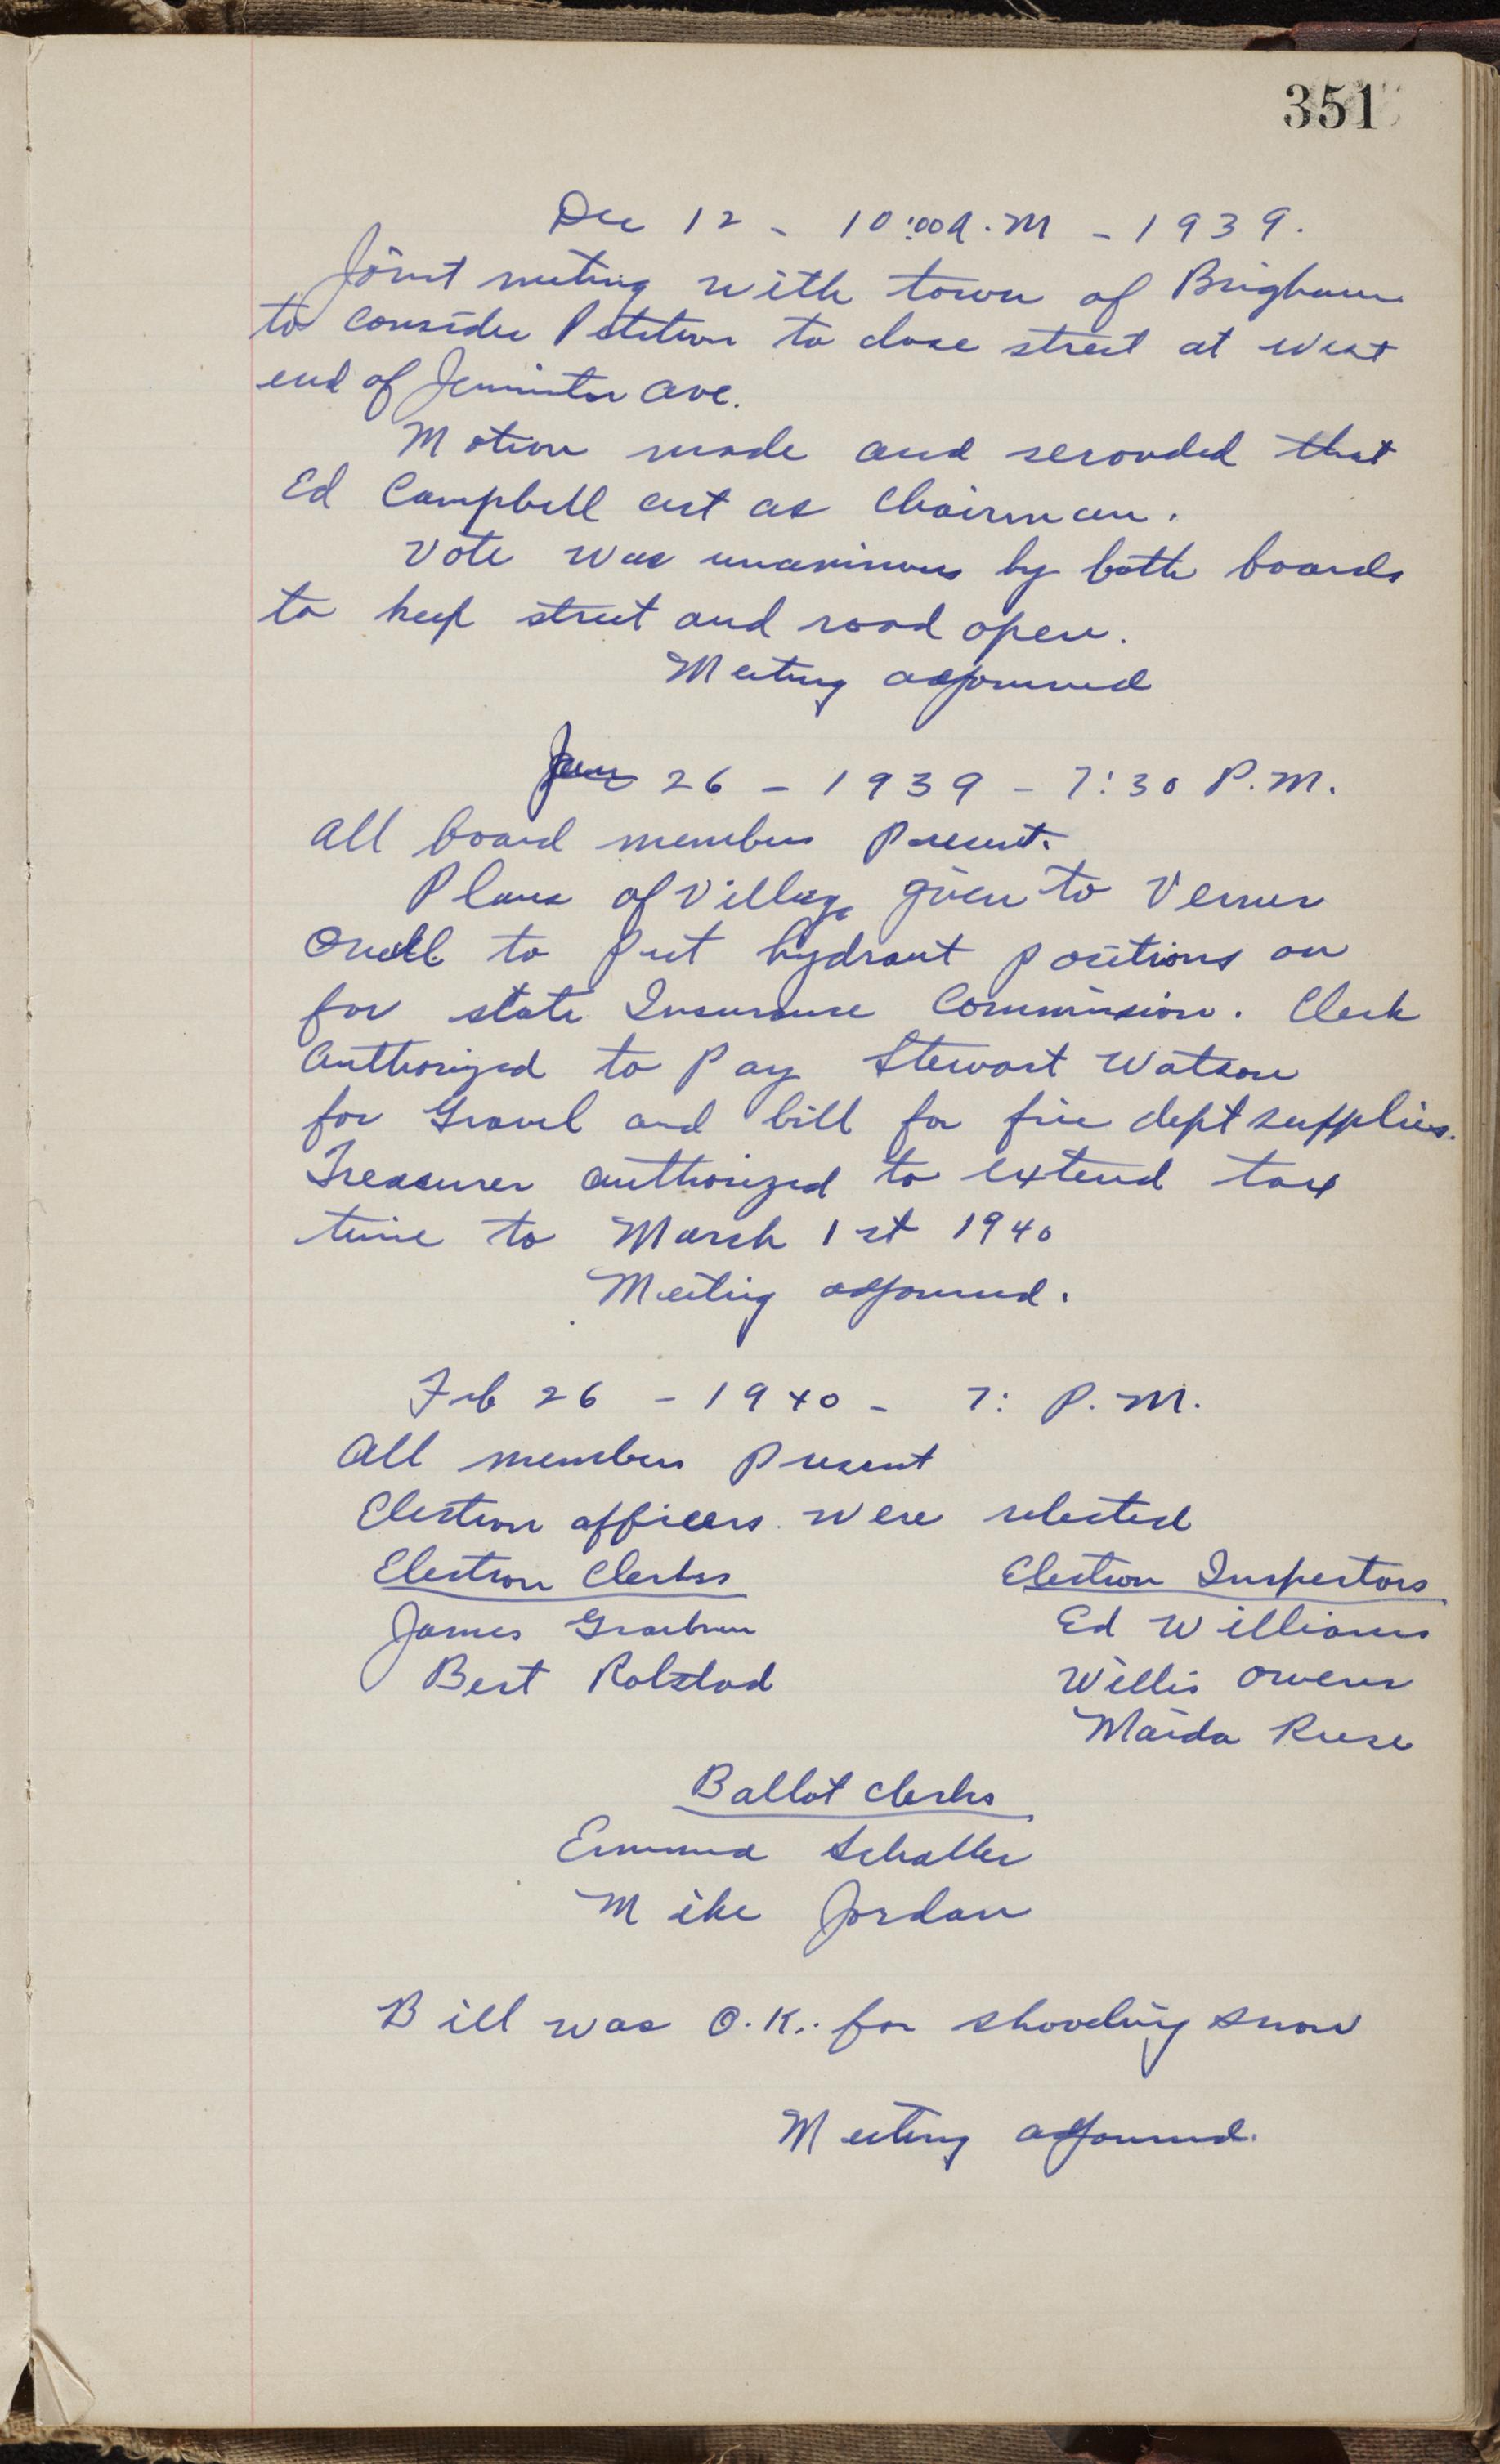 351
Dec 12 - 10:00 A.M - 1939.
Joint meeting with town of Brigham
to consider Petition to close street at west
end of Ave.
Motion made and seconded that
Ed Campbell act as Chairman.
Vote was unanimous by both boards
to keep street and road open.
Meeting adjourned
Jan 26 - 1939 - 7:30 P.M.
All board members present.
Plans of Village given to Verner
to put hydrant positions on
for state Insurance Commission. Clerk
authorized to Pay Stewart Watson
for Gravel and bill for fire dept supplies.
Treasurer authorized to extend tax
time to March 1st 1940
Meeting adjourned.
Feb 26 - 1940 - 7: P.M.
All members present
Election officers were selected
Election Clerks
Election Inspectors
James
Ed Williams
Bert Rolstad
Willis Owens
Maida Reese
Ballot clerks
Emma Schaller
Mike Jordan
Bill was O.K. for shoveling snow
Meeting adjourned.